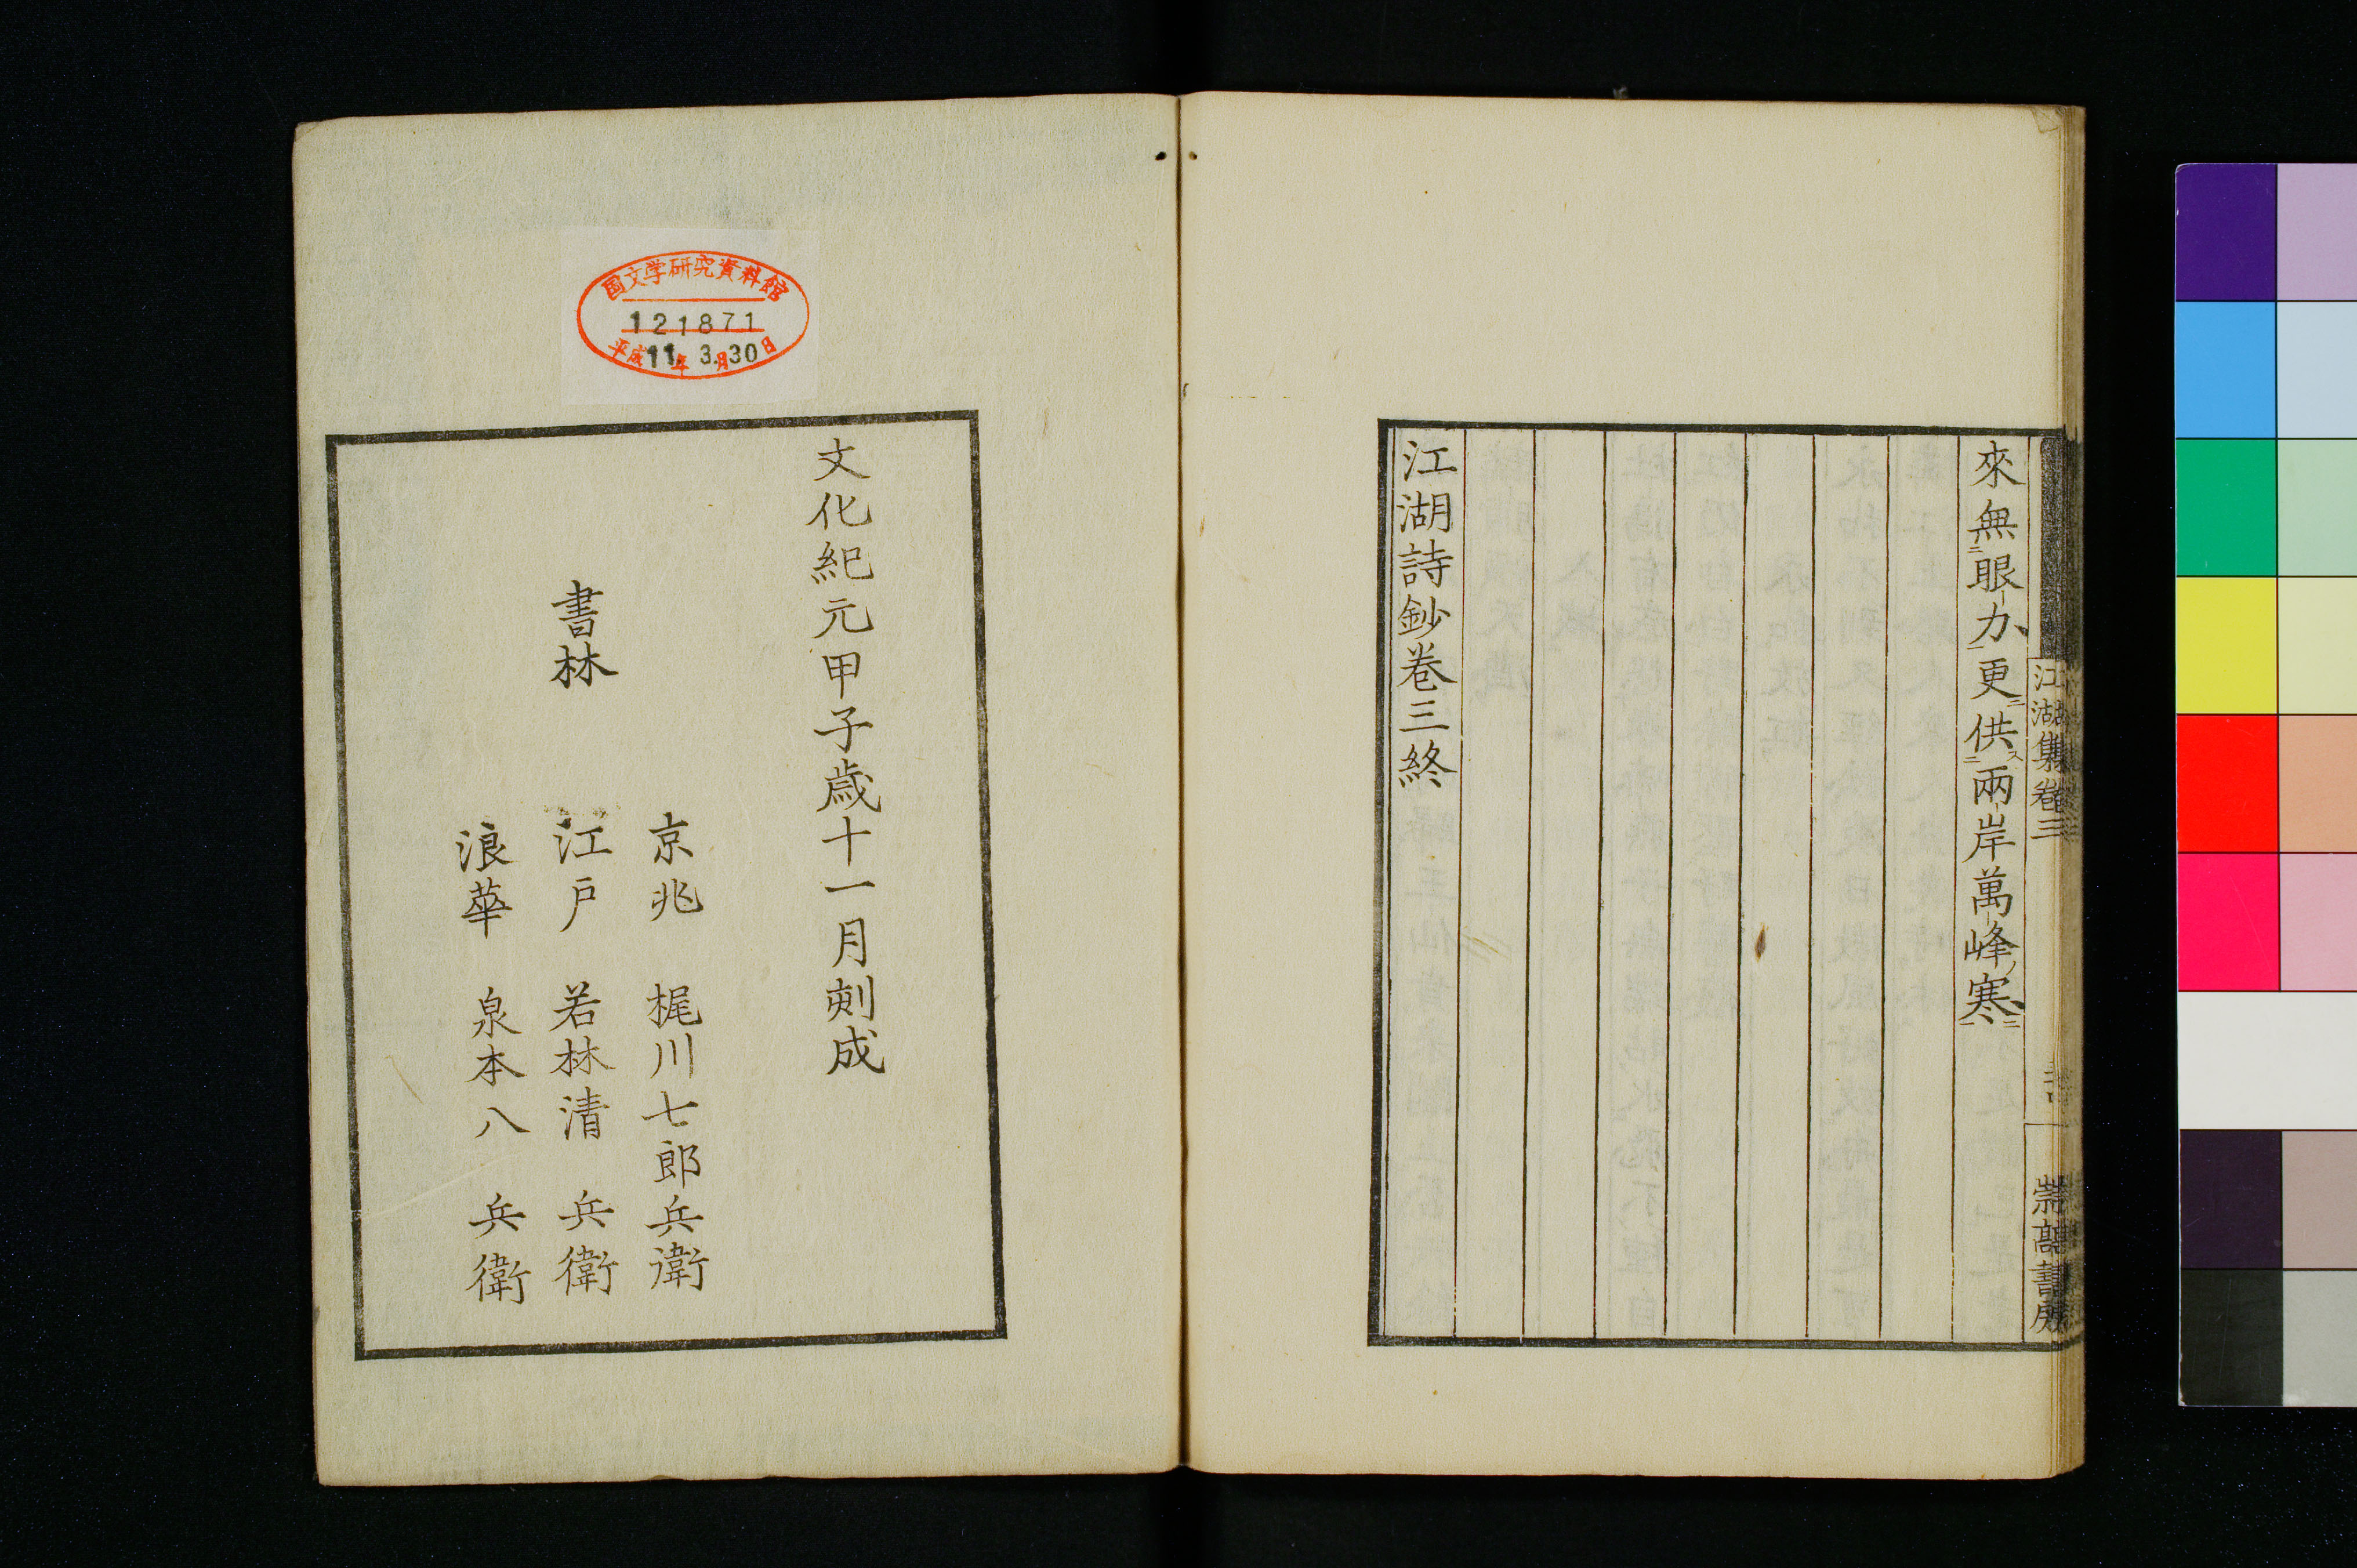 來無眼力更供兩岸萬峰寒
江湖詩鈔卷三終
江湖集卷三
嵩高書房
国文学研究資料館
121871
平成11年3月30日
文化紀元甲子歳十一月刻成
書林
京兆 梶川七郎兵衛
江戸 若林清兵衛
浪華 泉本八兵衛